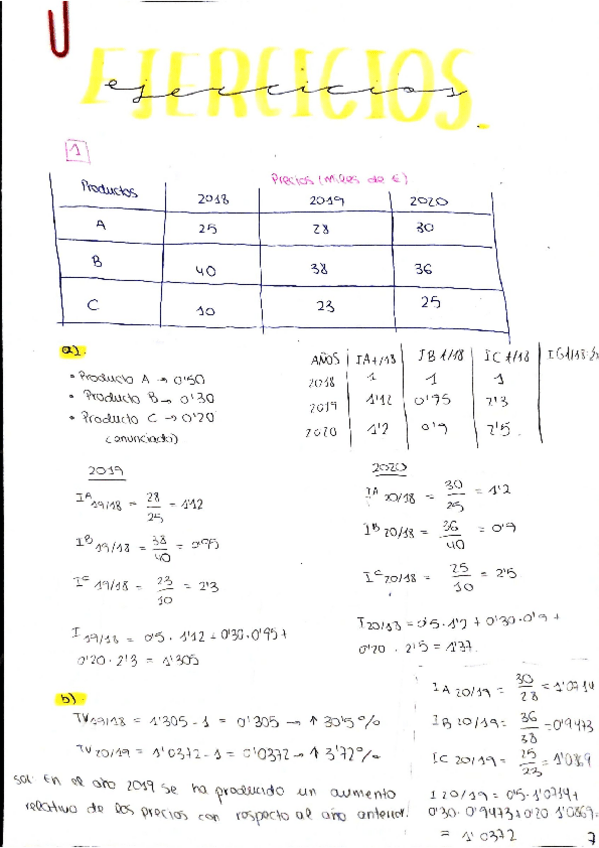 EJERCICIOS.
ejercicios
1
Productos Precios (miles de €)
2018 2019 2020
A 25 28 30
B 40 38 36
C 10 23 25
a).
• Producto A → 0'50
• Producto B → 0'30
• Producto C → 0'20
(enunciado)
AÑOS IA t/18 IB t/18 IC t/18
2018 1 1 1
2019 1'12 0'95 2'3
2020 1'2 0'9 2'5
2019
I^A 19/18 = 28/25 = 1'12
I^B 19/18 = 38/40 = 0'95
I^C 19/18 = 23/10 = 2'3
I 19/18 = 0'5 · 1'12 + 0'30 · 0'95 +
0'20 · 2'3 = 1'305
2020
I^A 20/18 = 30/25 = 1'2
I^B 20/18 = 36/40 = 0'9
I^C 20/18 = 25/10 = 2'5
I 20/18 = 0'5 · 1'2 + 0'30 · 0'9 +
0'20 · 2'5 = 1'37.
b).
TV 19/18 = 1'305 - 1 = 0'305 → ↑ 30'5 %
TV 20/19 = 1'0372 - 1 = 0'0372 → ↑ 3'72 %
Sol: En el año 2019 se ha producido un aumento
relativo de los precios con respecto al año anterior.
IA 20/19 = 30/28 = 1'0714
IB 20/19 = 36/38 = 0'9473
IC 20/19 = 25/23 = 1'0869
I 20/19 = 0'5 · 1'0714 +
0'30 · 0'9473 + 0'20 · 1'0869 .
= 1'0372
7